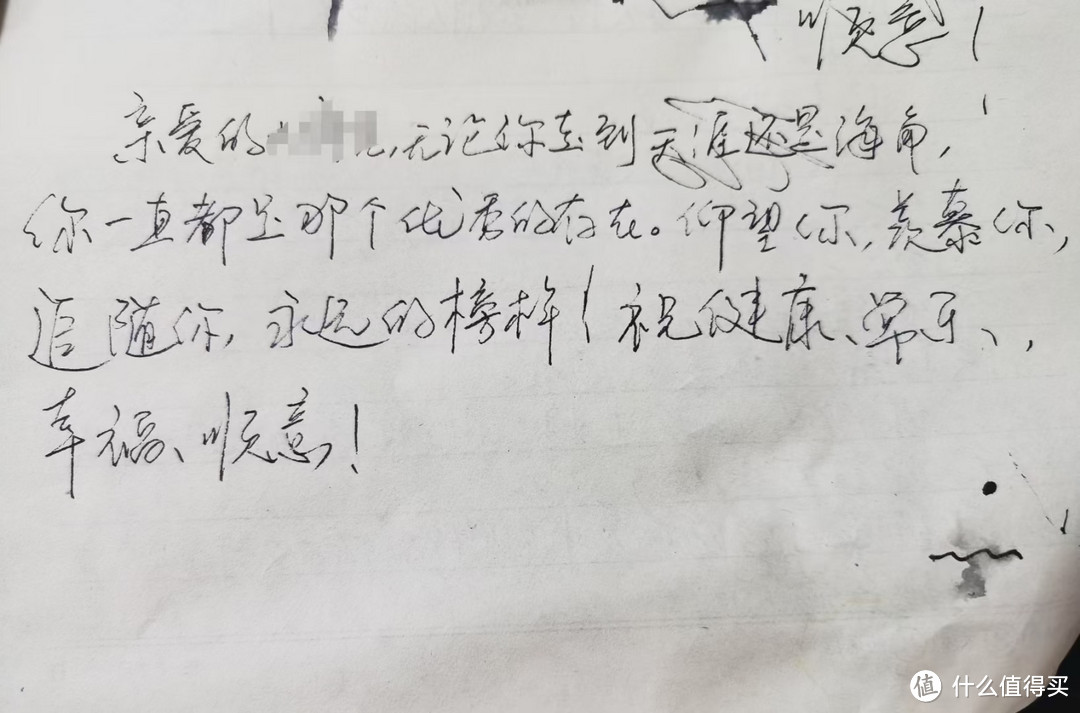 顺意!
亲爱的,无论你走到天涯还是海角,
你一直都是那个优秀的存在。仰望你,羡慕你,
追随你,永远的榜样!祝健康、常乐、,
幸福、顺意!
值 什么值得买